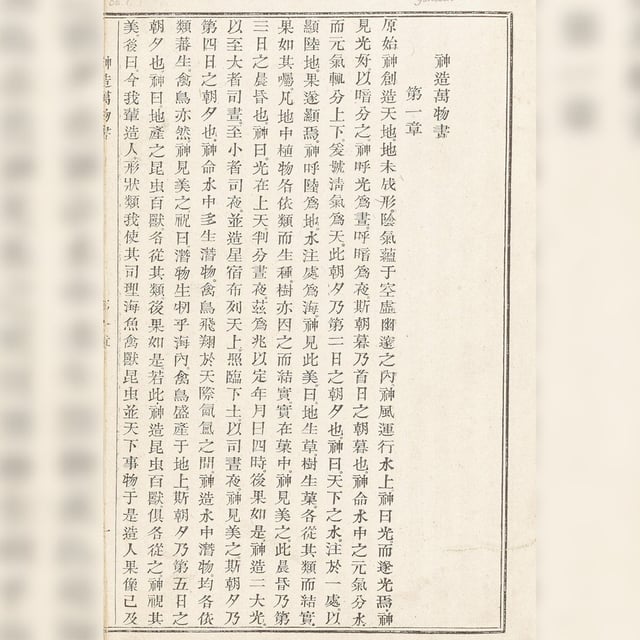 神造萬物書
第一章
原始神創造天地地未成形陰氣蘊于空虛幽邃之內神風運行水上神曰光而遂光焉神
見光好以暗分之神呼光爲晝呼暗爲夜斯朝暮乃首日之朝暮也神命水中之元氣分水
而元氣輒分上下爰號淸氣爲天此朝夕乃第二日之朝夕也神曰天下之水注於一處以
顯陸地果遂顯焉神呼陸爲地水注處爲海神見此美曰地生草樹生菓各從其類而結實
果如其囑凡地中植物各依類而生種樹亦因之而結實實在菓中神見美之此晨昏乃第
三日之晨昏也神曰光在上天判分晝夜茲爲兆以定年月日四時後果如是神造二大光
以至大者司晝至小者司夜並造星宿布列天上照臨下土以司晝夜神見美之斯朝夕乃
第四日之朝夕也神命水中多生潛物禽鳥飛翔於天際氤氳之間神造水中潛物均各依
類蕃生禽鳥亦然神見美之祝曰潛物生牣乎海內禽鳥盛產于地上斯朝夕乃第五日之
朝夕也神曰地產之昆虫百獸各從其類後果如是若此神造昆虫百獸俱各從之神視其
美後曰今我輩造人形狀類我使其司理海魚禽獸昆虫並天下事物于是造人果像己及
神造萬物書